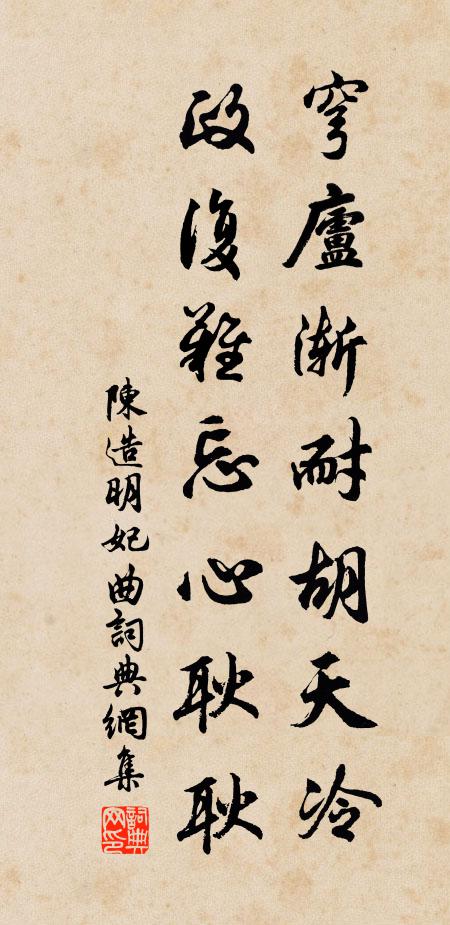 穹廬漸耐胡天冷
政復難忘心耿耿
陳造明妃曲詞典網集
詞典网印